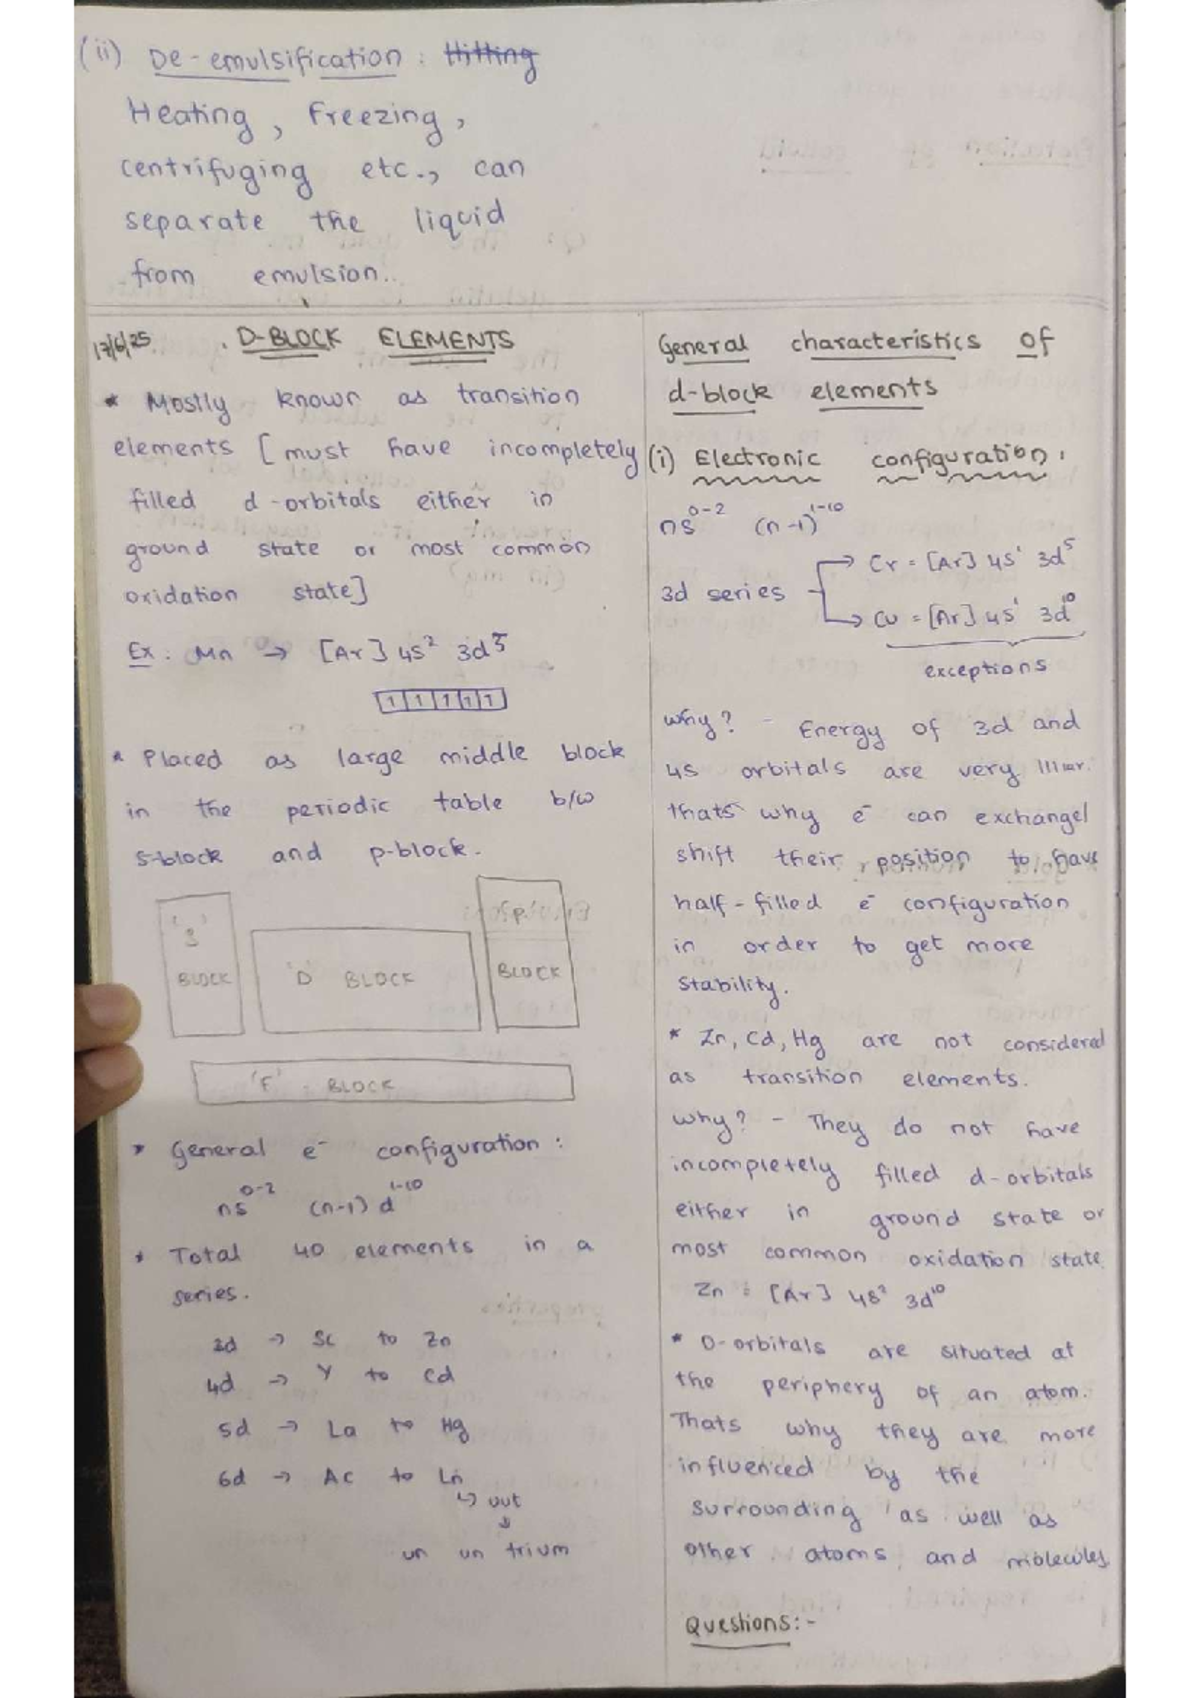 (ii) De-emulsification : Hitting
Heating, Freezing,
centrifuging etc., can
separate the liquid
from emulsion..
17/6/25. D-BLOCK ELEMENTS
* Mostly known as transition
elements [must have incompletely
filled d-orbitals either in
ground state or most common
oxidation state]
Ex: Mn → [Ar] 4s² 3d⁵
1 1 1 1 1
* Placed as large middle block
in the periodic table b/w
s-block and p-block.
'S'
BLOCK
'D' BLOCK
'P'
BLOCK
'F' BLOCK
* General e⁻ configuration :
ns⁰⁻² (n-1) d¹⁻¹⁰
* Total 40 elements in a
series.
3d → Sc to Zn
4d → Y to Cd
5d → La to Hg
6d → Ac to
↳ uut
↓
un un trium
General characteristics of
d-block elements
(i) Electronic configuration.
ns⁰⁻² (n-1)¹⁻¹⁰
3d series → Cr = [Ar] 4s¹ 3d⁵
→ Cu = [Ar] 4s¹ 3d¹⁰
exceptions
Why? - Energy of 3d and
4s orbitals are very
thats why e⁻ can exchange/
shift their position to have
half-filled e⁻ configuration
in order to get more
stability.
* Zn, Cd, Hg are not considered
as transition elements.
Why? - They do not have
incompletely filled d-orbitals
either in ground state or
most common oxidation state.
Zn : [Ar] 4s² 3d¹⁰
* D-orbitals are situated at
the periphery of an atom.
Thats why they are more
influenced by the
surrounding as well as
other atoms and molecules
Questions:-